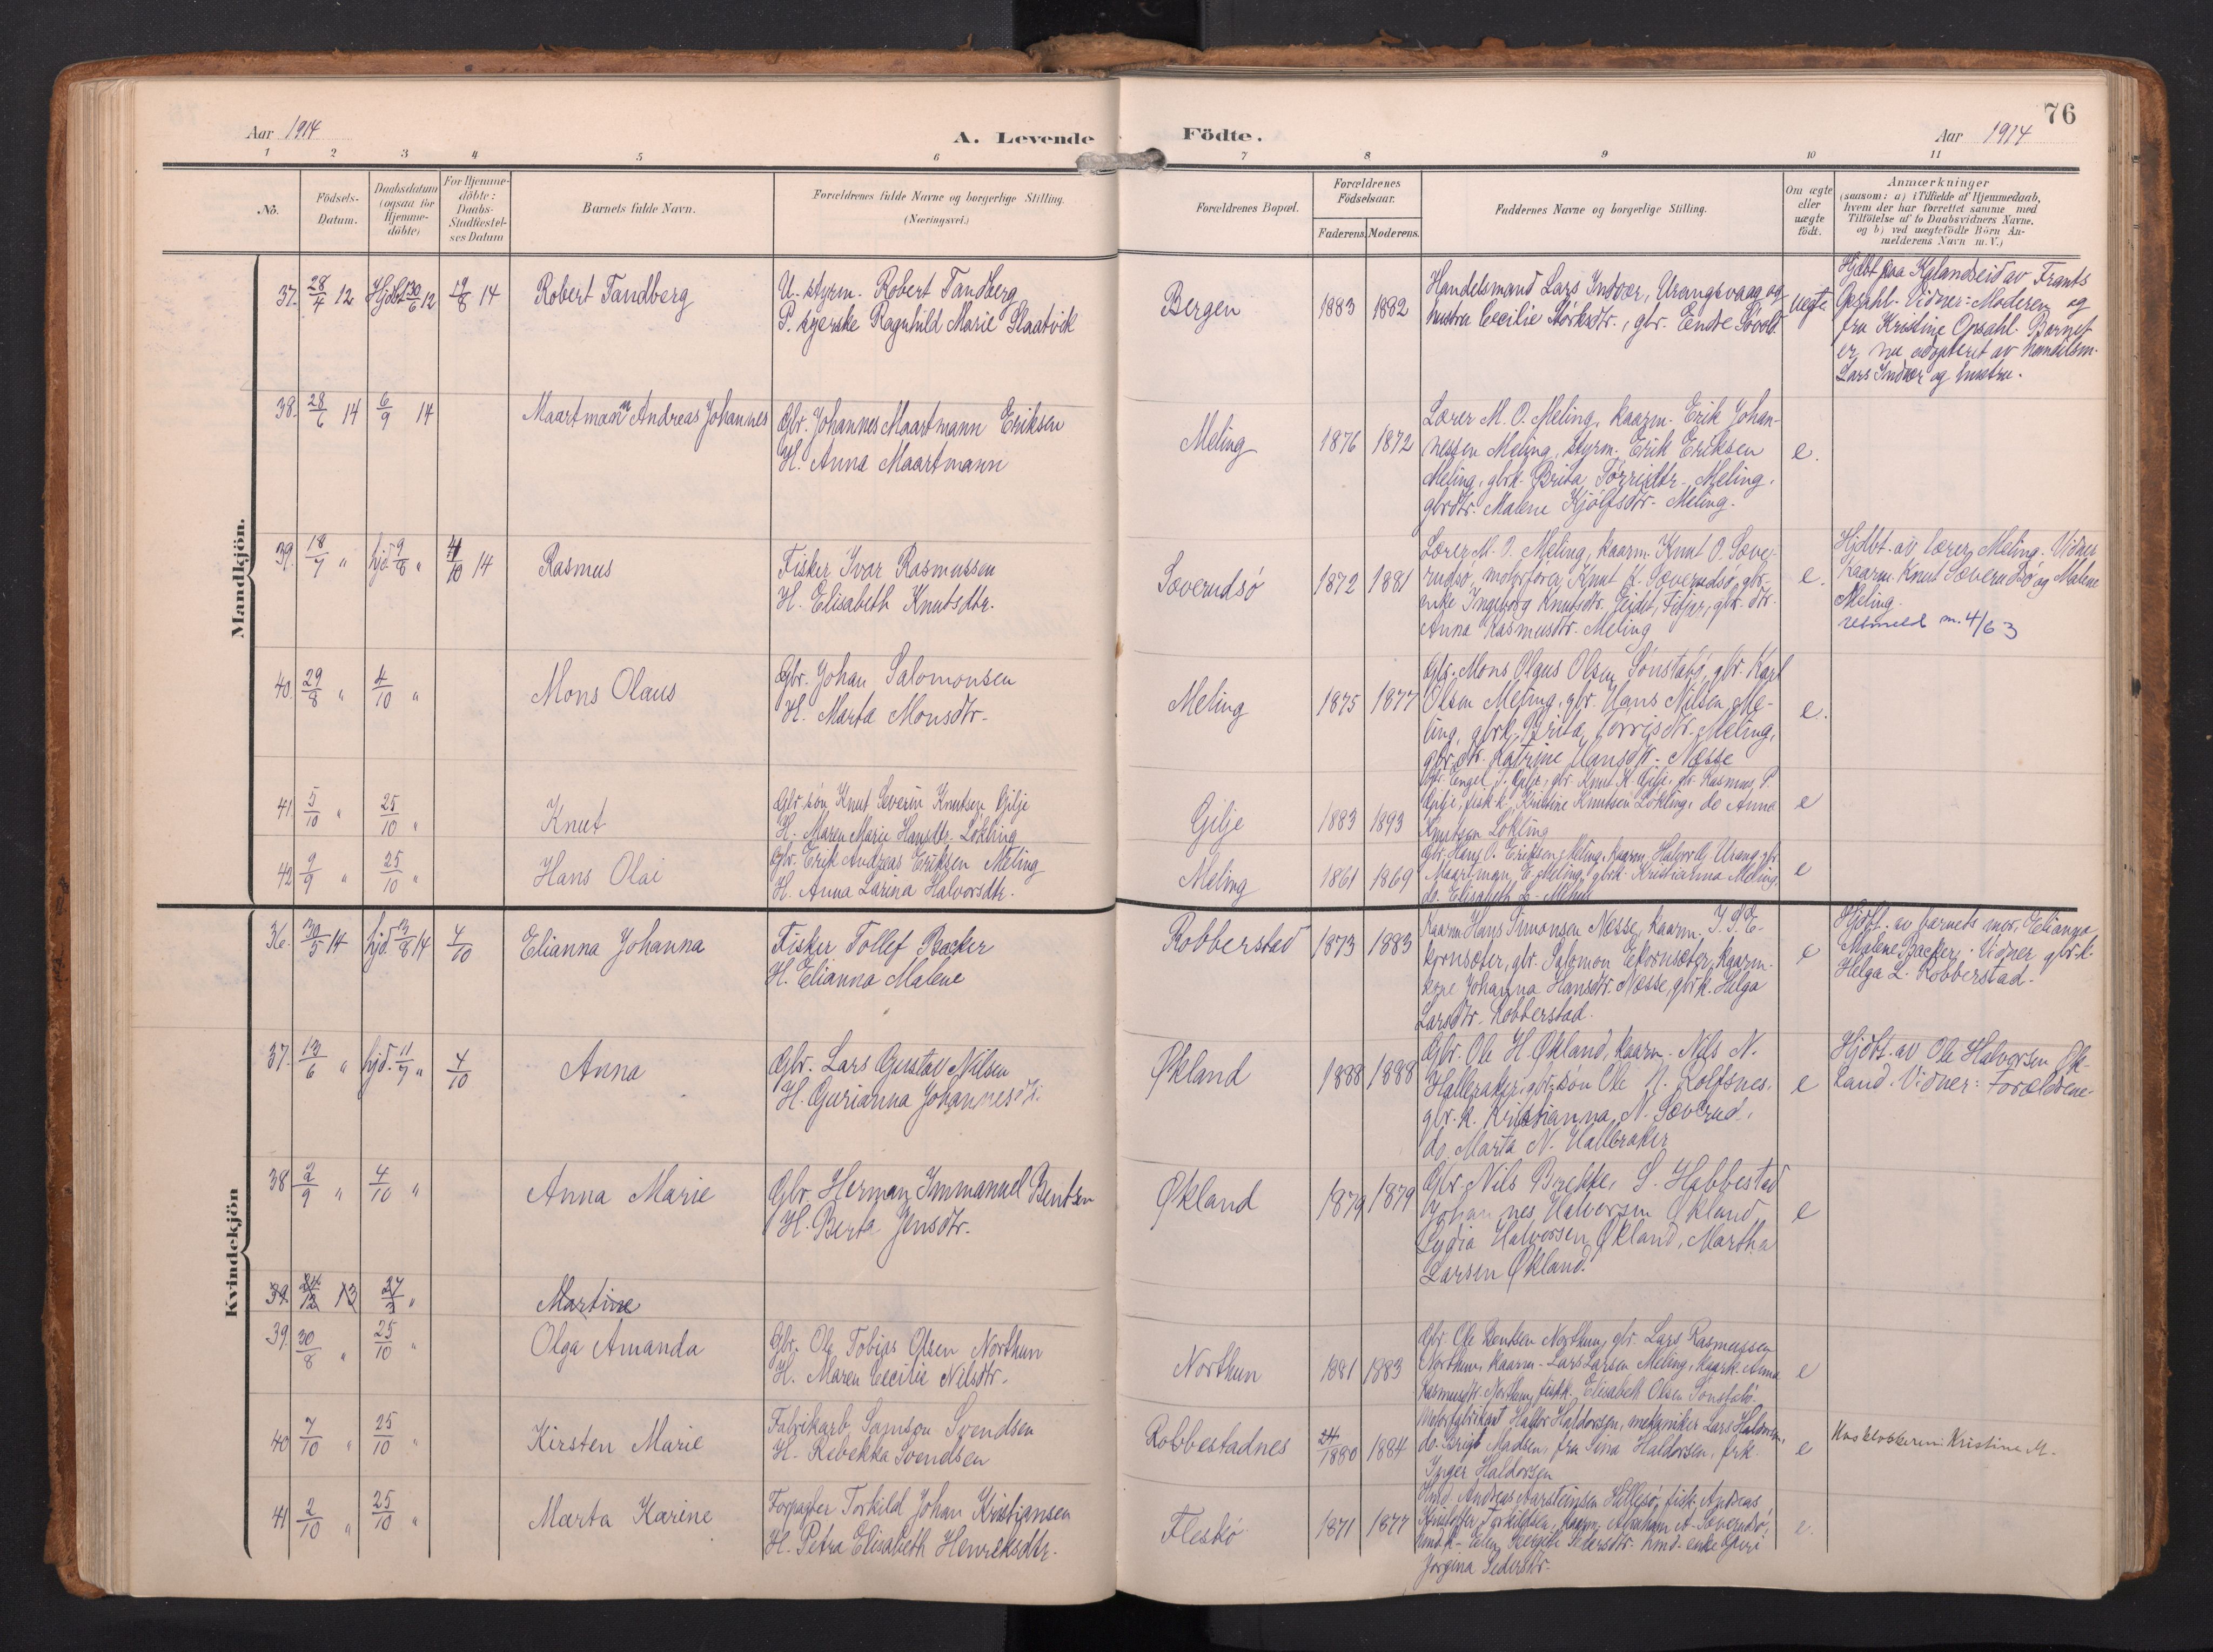 76
Aar 1914
A. Levende Födte.
Aar 1914
1 2 3 4 5 6 7 8 9 10 11
No.
Födsels-
Datum.
Daabsdatum
(ogsaa for
Hjemme-
döbte)
For Hjemme-
döbte:
Daabs-
Stadfæstel-
ses Datum
Barnets fulde Navn.
Forældrenes fulde Navne og borgerlige Stilling.
(Næringsvei.)
Forældrenes Bopæl.
Forældrenes
Födselsaar.
Faderens. Moderens.
Faddernes Navne og borgerlige Stilling.
Om ægte
eller
uægte
födt.
Anmærkninger
(saasom: a) i Tilfælde af Hjemmedaab,
hvem der har forrettet samme med
Tilföielse af to Daabsvidners Navne.
og b) ved uægtefödte Börn An-
melderens Navn m. V.)
Mandkjön.
37. 28/4 12 Hjdbt 30/6 12 19/8 14 Robert Tandberg
U. styrm. Robert Tandberg
P. syerske Ragnhild Marie Slaatvik
Bergen 1883 1882
Handelsmand Lars Indvær, Urangsvaag og
hustru Cecilie Störksdtr., gbr. Endre Lövold
uegte
Hjdbt paa Kalandseid av Frants
Opsahl. Vidner: Moderen og
fru Kristine Opsahl. Barnet
er nu adopteret av handelsm.
Lars Indvær og hustru.
38. 28/6 14 6/9 14 Maartmann Andreas Johannes
Gbr. Johannes Maartmann Eriksen
H. Anna Maartmann
Meling 1876 1872
Lærer M. O. Meling, kaarm. Erik Johan-
nessen Meling, styrm. Erik Eriksen
Meling, gbrk. Brita Torrisdtr. Meling,
gbrdtr. Malene Kjölfsdtr. Meling.
e.
39. 18/7 " hjd. 9/8 " 4/10 14 Rasmus
Fisker Ivar Rasmussen
H. Elisabeth Knutsdtr.
Söverudsö 1872 1881
Lærer M. O. Meling, kaarm. Knut O. Sæve-
rudsö, motorförer Knut K. Sæverudsö, gbr.-
enke Ingeborg Knutsdtr. Eidet, Fitjar, gbr. dtr.
Anna Rasmusdtr. Meling
e.
Hjdbt. av lærer Meling. Vidner
kaarm. Knut Sæverudsö og Malene
Meling.
utmeldt m. 4/6 3
40. 29/8 " 4/10 " Mons Olaus
Gbr. Johan Salomonsen
H. Marta Monsdtr.
Meling 1875 1877
Gbr. Mons Olaus Olsen Sönstabö, gbr. Karl
Olsen Meling, gbr. Hans Nilsen Me-
ling, gbrk. Brita Torrisdtr. Meling,
gbr. dtr. Katrine Hansdtr. Næsse
e.
41. 5/10 " 25/10 " Knut
Gbr. sön Knut Severin Knutsen Gilje
H. Maren Marie Hansdtr. Lökling
Gilje 1883 1893
Gbr. Engel J. Gilje, gbr. Knut K. Gilje, gbr. Rasmus P.
Gilje, fisk. k. Kristine Knutsen Lökling, do Anna
Knutsen Lökling
e
42 9/9 " 25/10 " Hans Olai
Gbr. Erik Andreas Eriksen Meling
H. Anna Larina Halvorsdtr.
Meling 1861 1869
Gbr. Hans O. Eriksen Meling, kaarm. Halvor Urang, gbr.
Maartman E. Meling, gbrk. Kristianna Meling,
do. Elisabeth
e
Kvindekjön
36. 30/5 14 hjd. 13/8 14 4/10 Elianna Johanna
Fisker Tollef Backer
H. Elianna Malene
Robberstad 1873 1883
Kaarm. Hans Simonsen Næsse, kaarm. J. S. E-
kornsæter, gbr. Salomon Ekornsæter, kaarm.-
kone Johanna Hansdtr. Næsse, gbrk. Helga
Larsdtr. Robberstad.
e
Hjdbt. av barnets mor, Elianna
Malene Backer. Vidner gbr. k.
Helga L. Robberstad.
37. 13/6 " hjd. 11/7 " 4/10 Anna
Gbr. Lars Gustav Nilsen
H. Gurianna Johannesdtr.
Økland 1888 1888
Gbr. Ole H. Økland, kaarm. Nils N.
Halleraker, gbr. sön Ole N. Rolfsnes,
gbr. k. Kristianna N. Sæverud,
do. Marta N. Halleraker
e
Hjdbt. av Ole Halvorsen Øk-
land. Vidner: Forældrene.
38 2/9 " 4/10 " Anna Marie
Gbr. Herman Immanuel Bentsen
H. Berta Jensdtr.
Økland 1879 1879
Gbr. Nils Brekke, S. Habbestad
Johannes Halvorsen Økland
Lydia Halvorsen Økland, Martha
Larsen Økland.
e
39. 13 27/3 " Martine
39. 30/8 " 25/10 " Olga Amanda
Gbr. Ole Tobias Olsen Northun
H. Maren Cecilie Nilsdtr.
Northun 1881 1883
Gbr. Ole Bentsen Northun, gbr. Lars Rasmussen
Northun, kaarm. Lars Larsen Meling, kaark. Anna
Rasmusdtr. Northun, fisk k. Elisabeth Olsen Sönstabö
e
40 7/10 " 25/10 " Kirsten Marie
Fabrikarb. Samson Svendsen
H. Rebekka Svendsen
Robbestadnes 1880 1884
Motorfabrikant Haldor Haldorsen, mekaniker Lars Haldorsen,
do. Brigt Madsen, fru Sina Haldorsen, frk.
Inger Haldorsen
e
Kristine M.
41 2/10 " 25/10 " Marta Karine
Forpagter Torkild Johan Kristiansen
H. Petra Elisabeth Henriksdtr.
Fleskö 1871 1877
Hmd. Andreas Aarsteinsen Hillesö, fisk. Andreas
Kristoffer Torkildsen, kaarm. Abraham A. Sæverudsö,
hmd. k. Elen Pedersdtr. hmd. enke Guri
Jorgina Pedersdtr.
e.